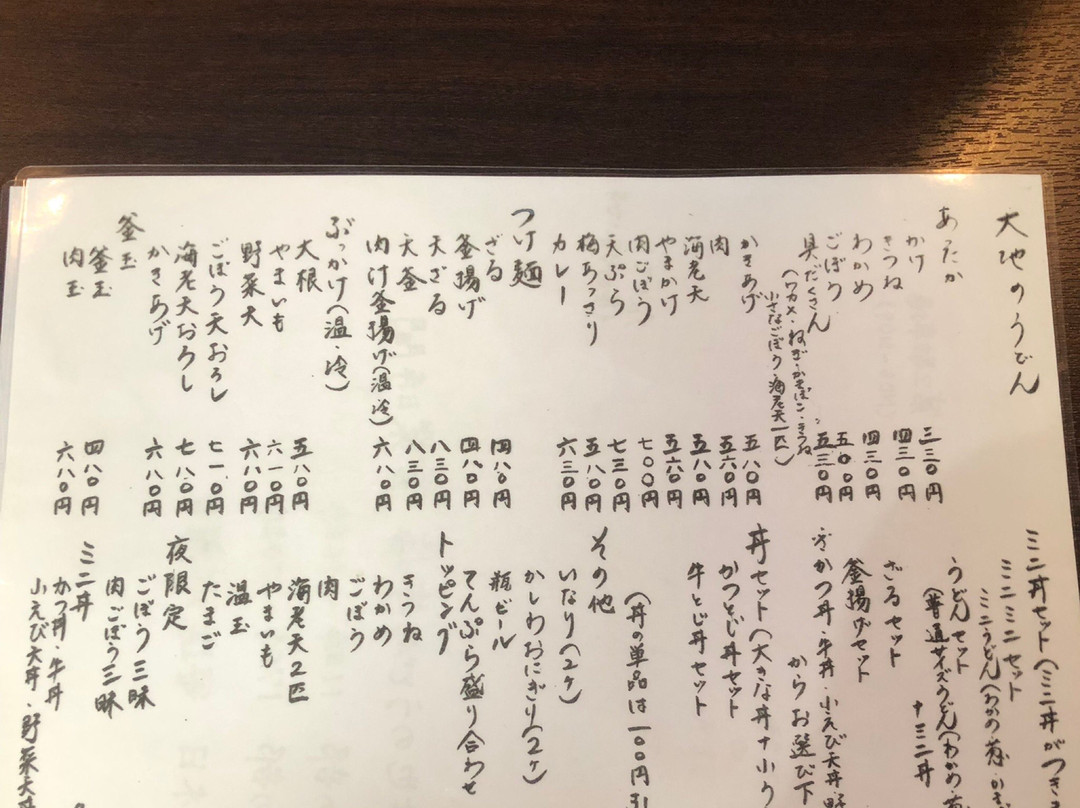 大地のうどん
あたたか
かけ 三三〇円
きつね 四三〇円
わかめ 四三〇円
ごぼう 五〇〇円
具だくさん 五三〇円
(ワカメ・ねぎ・かまぼこ・きつね
小さなごぼう・海老天一匹)
かきあげ 五八〇円
肉 五六〇円
海老天 五八〇円
やまかけ 五六〇円
肉ごぼう 七〇〇円
天ぷら 七三〇円
梅あっさり 五八〇円
カレー 六三〇円
つけ麺
ざる 四八〇円
釜揚げ 四八〇円
天ざる 八三〇円
天釜 八三〇円
肉汁釜揚げ(温冷) 六八〇円
ぶっかけ(温・冷)
大根 五八〇円
やまいも 六一〇円
野菜天 六八〇円
ごぼう天おろし 七一〇円
海老天おろし 七八〇円
かきあげ 六八〇円
釜玉
釜玉 四八〇円
肉玉 六八〇円
ミニ丼セット(ミニ丼がつき
ミニミニセット
ミニうどん(わかめ・葱・か
うどんセット
(普通サイズうどん(わかめ
+ミニ丼
ざるセット
釜揚げセット
かつ丼・牛丼・小えび天丼・野
からお選び下
丼セット(大きな丼+小う
かつとじ丼セット
牛とじ丼セット
(丼の単品は一〇〇円引
その他
いなり(2ヶ)
かしわおにぎり(2ヶ)
瓶ビール
てんぷら盛り合わせ
トッピング
きつね
わかめ
ごぼう
肉
海老天2匹
やまいも
温玉
たまご
夜限定
ごぼう三昧
肉ごぼう三昧
ミニ丼
かつ丼・牛丼
小えび天丼・野菜天丼